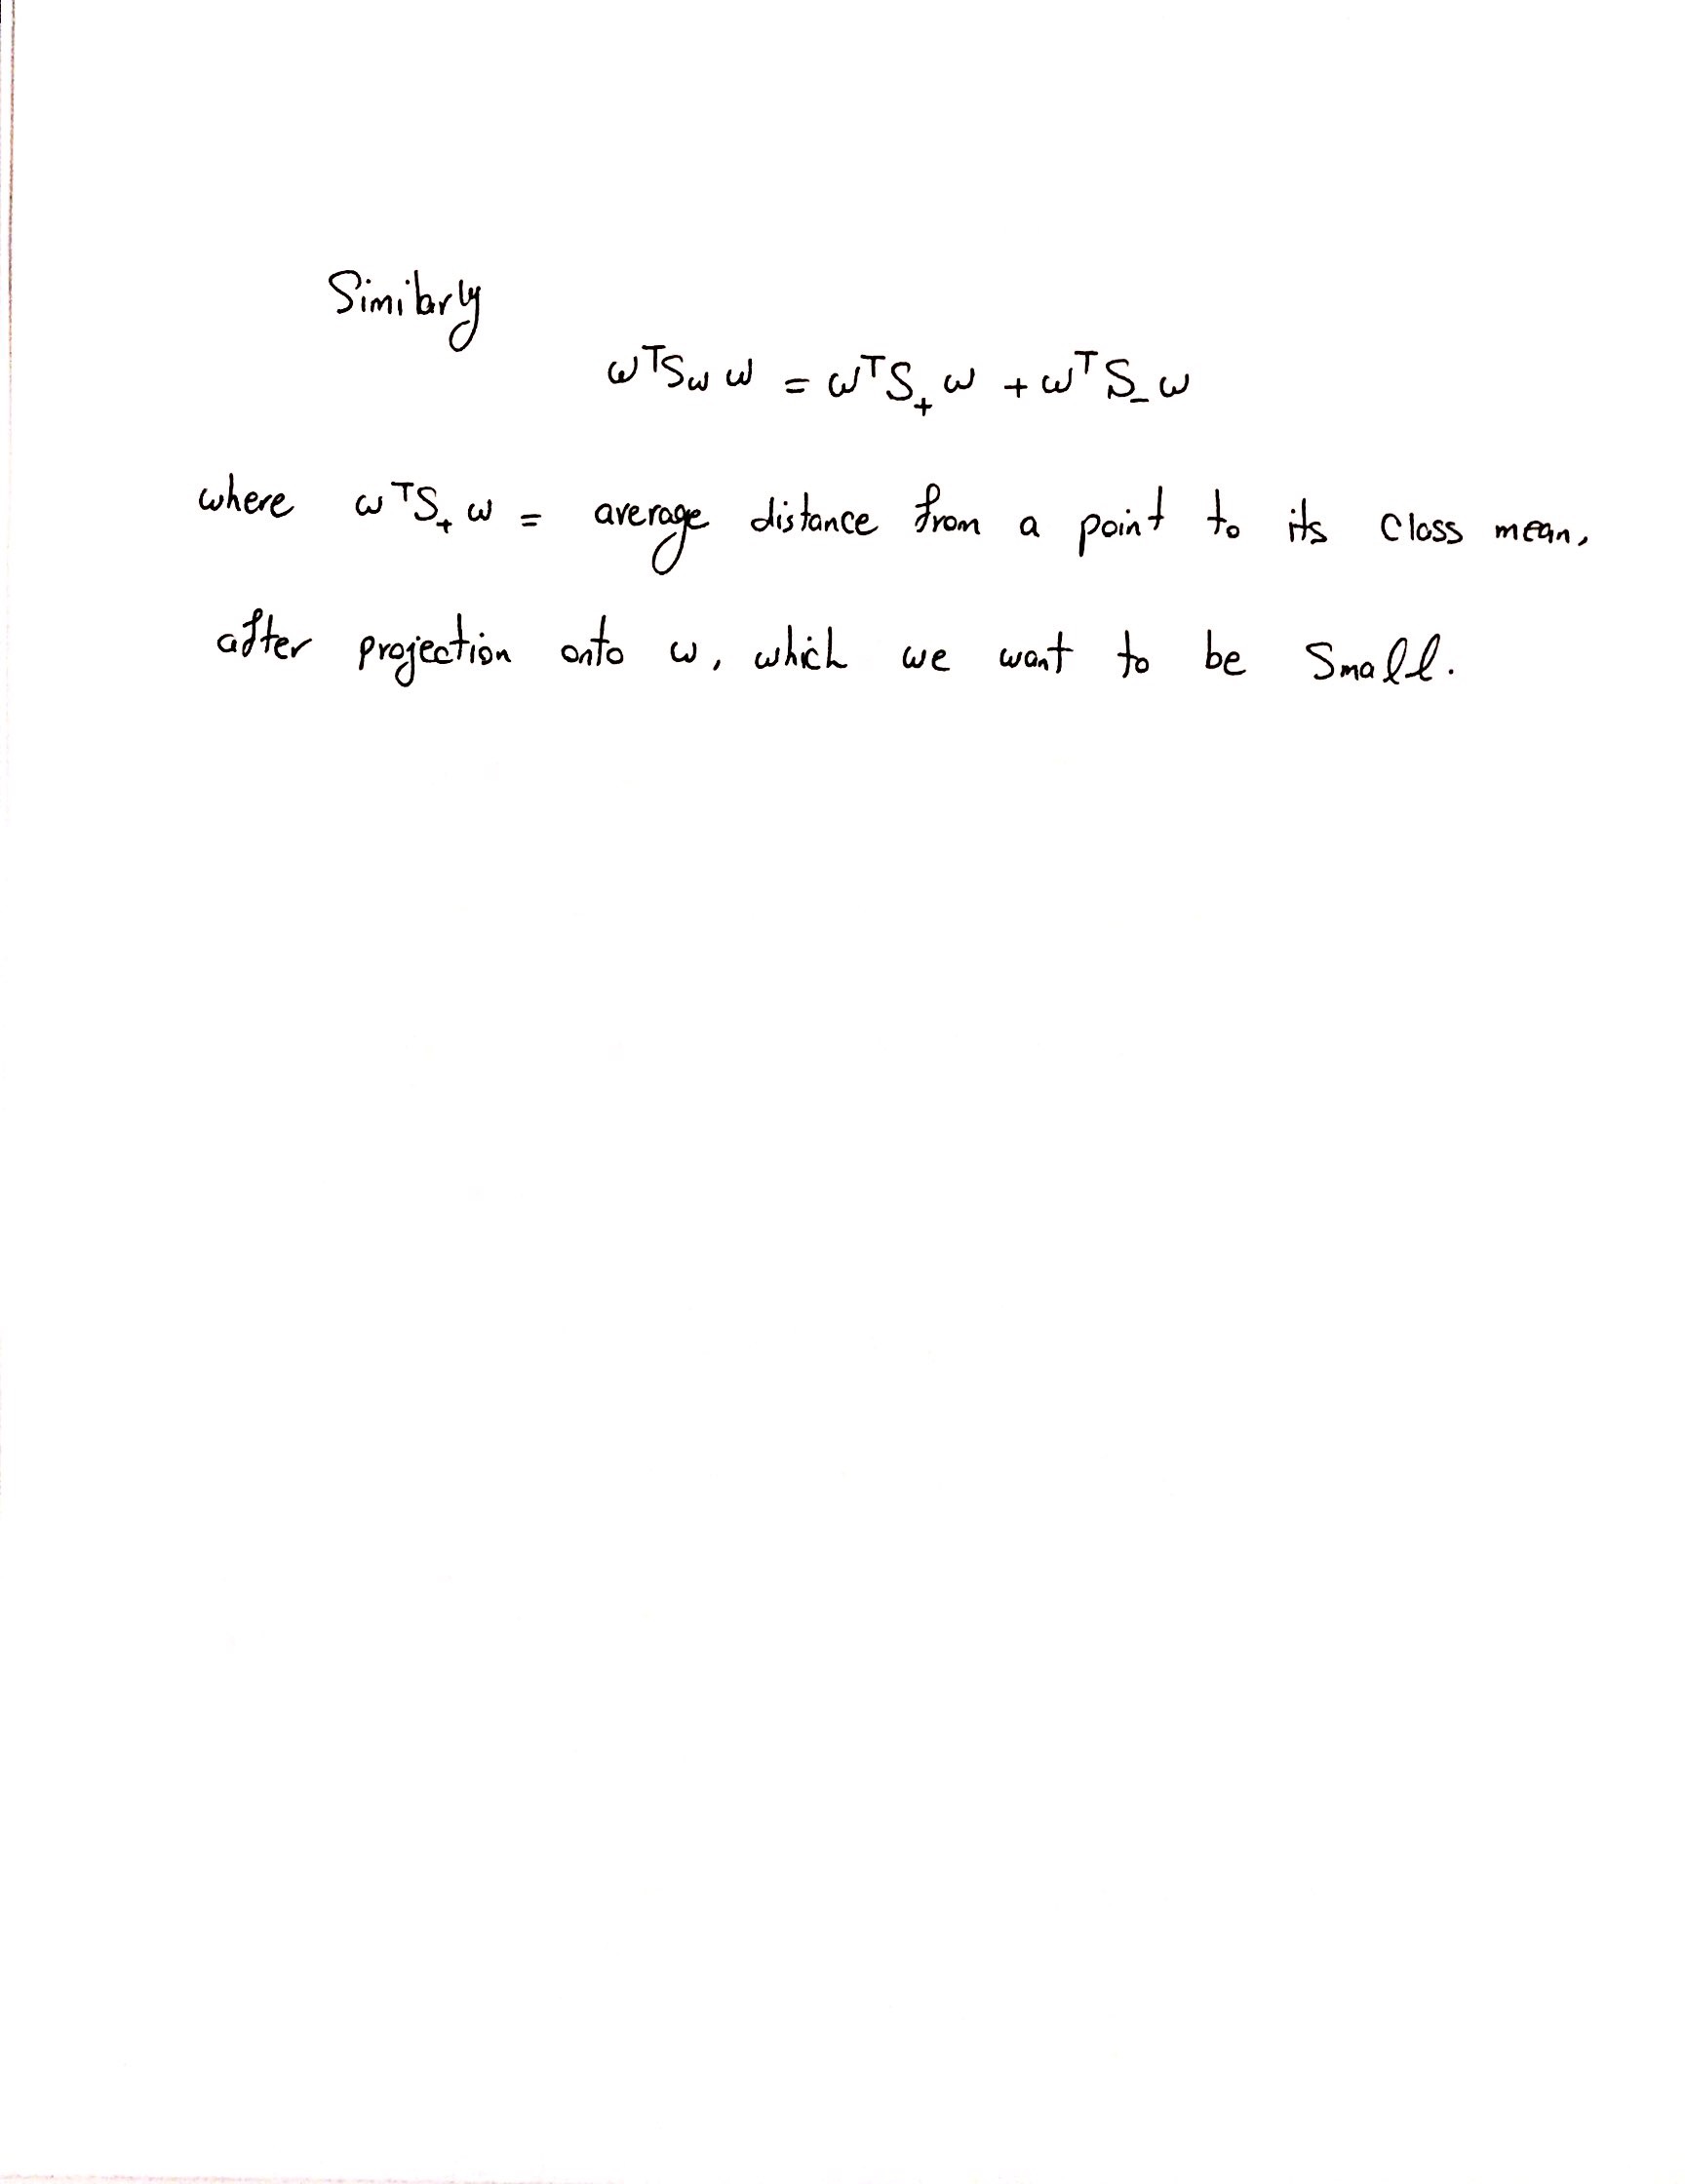 Similarly
ω^T S_w ω = ω^T S_+ ω + ω^T S_- ω
where ω^T S_+ ω = average distance from a point to its class mean,
after projection onto ω, which we want to be small.